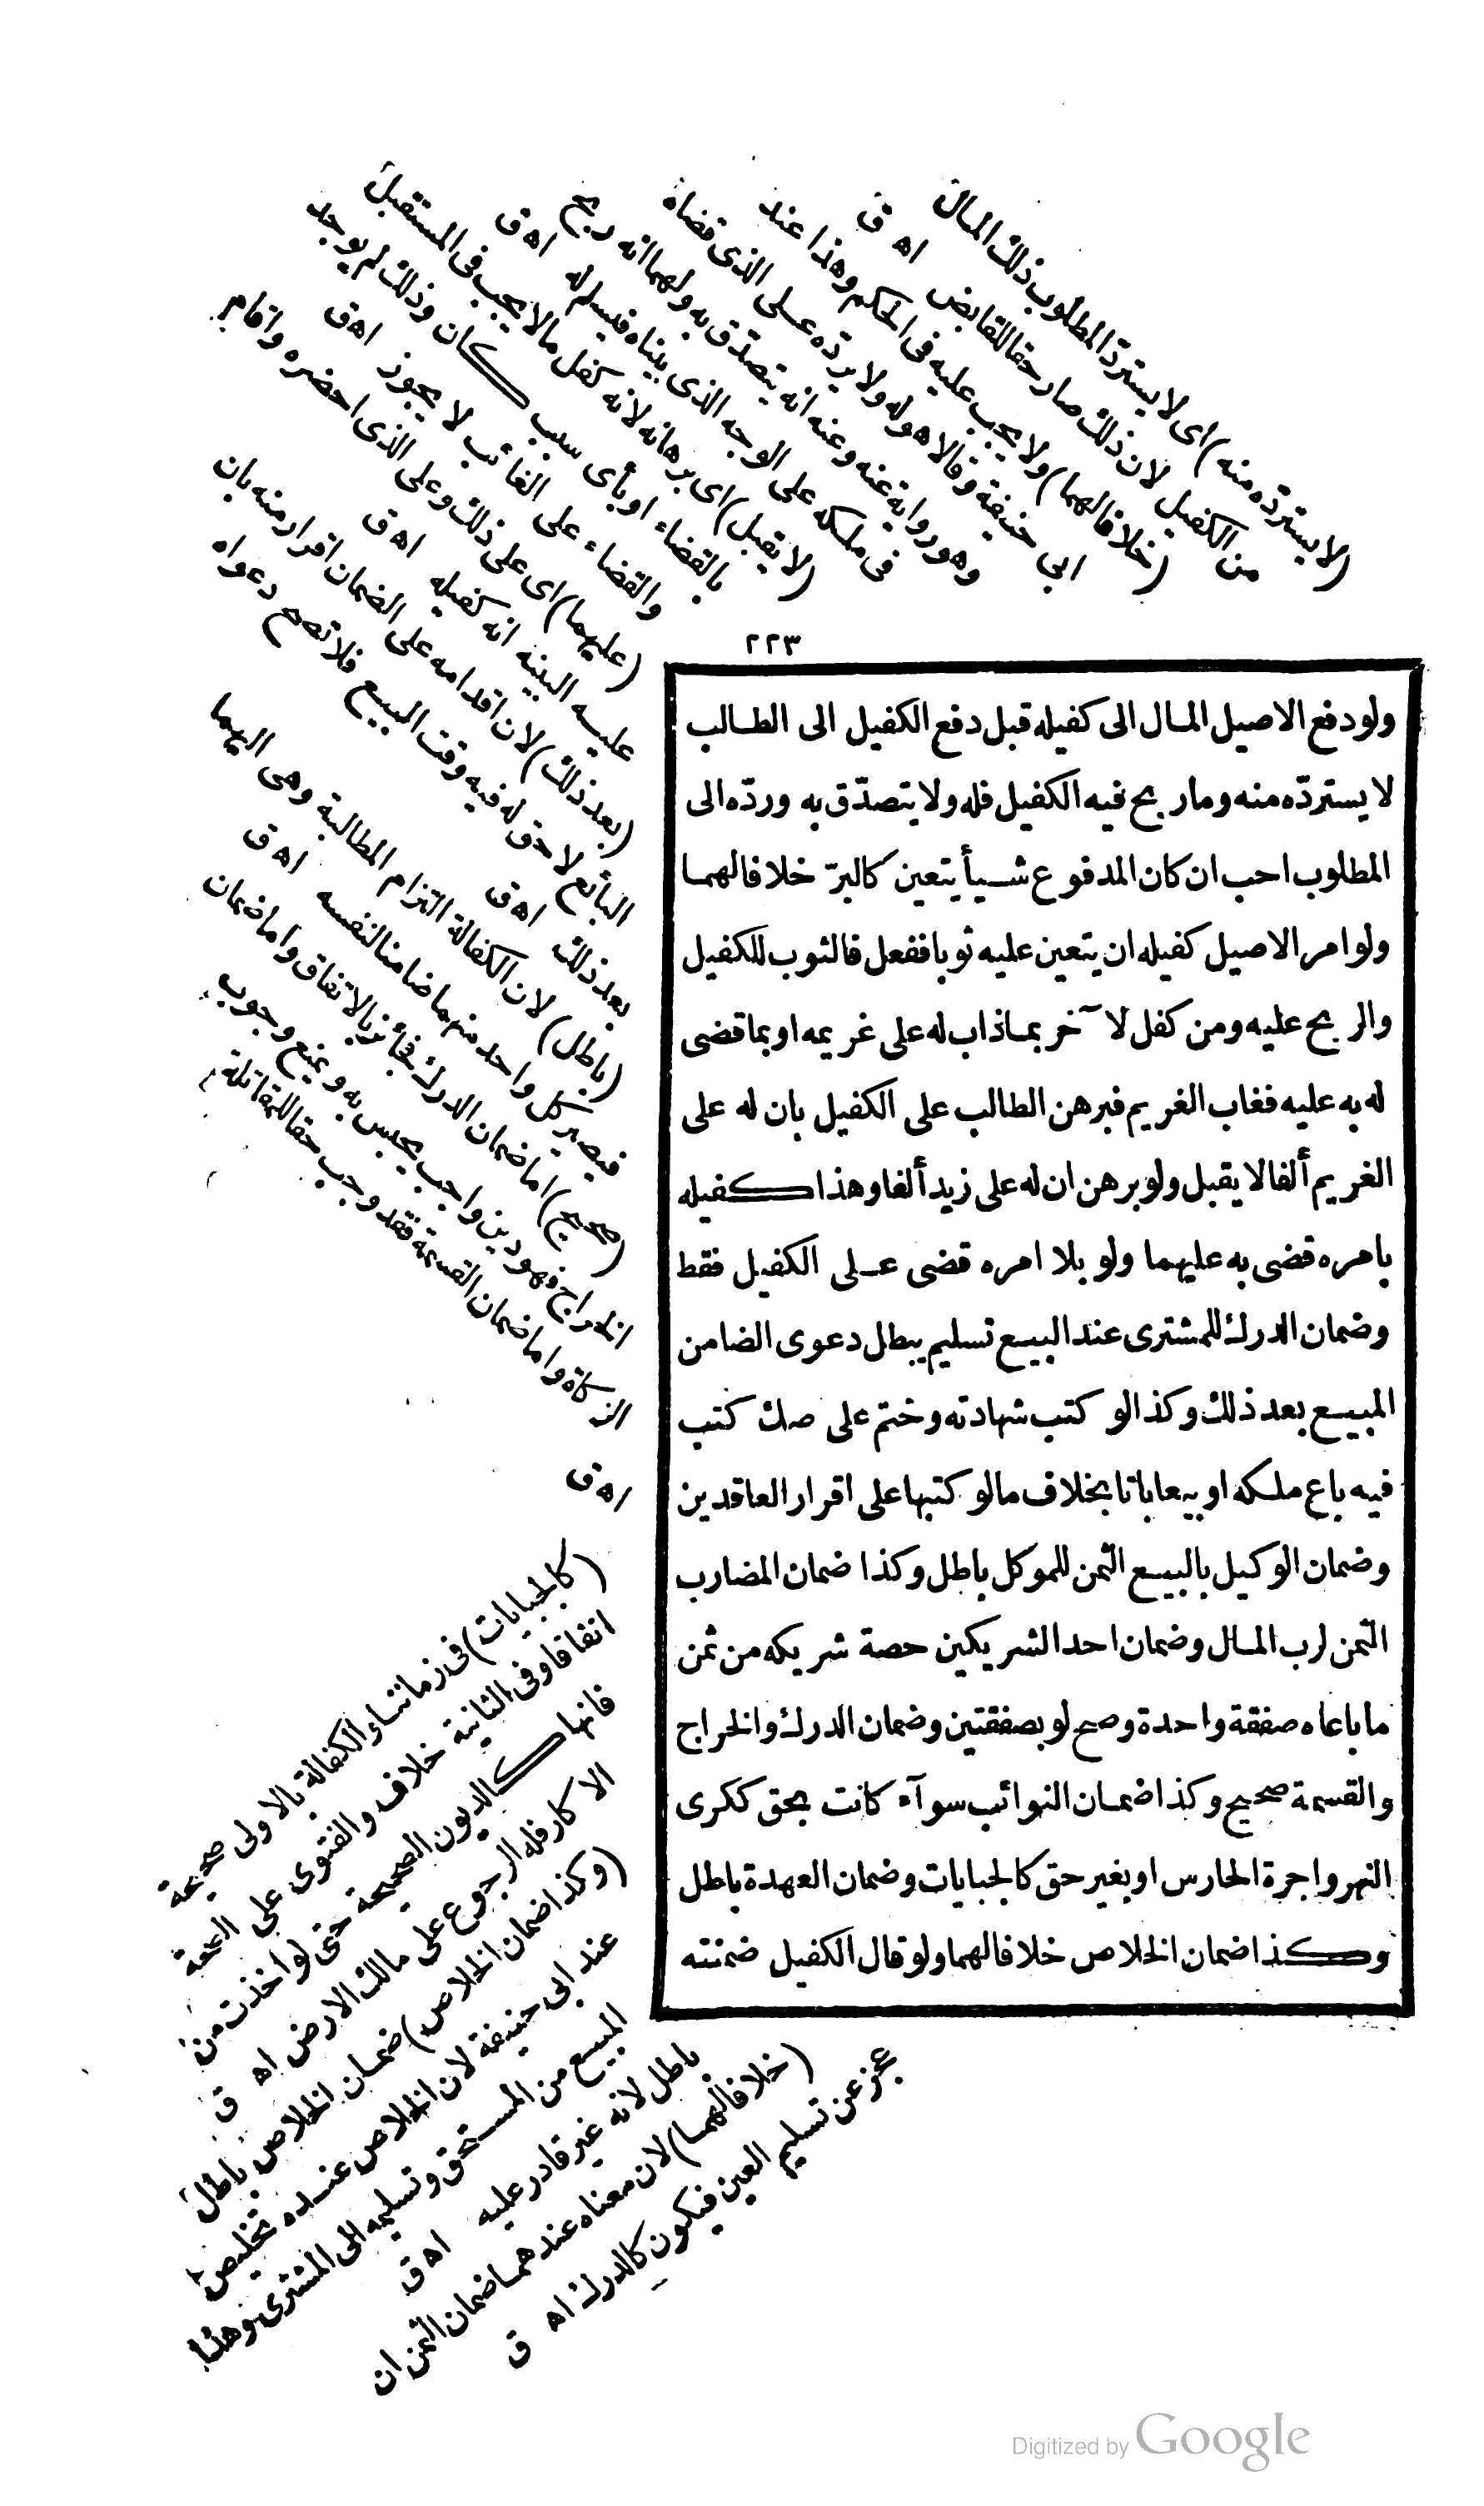 ٢٢٣
ولو دفع الاصيل المال الى كفيله قبل دفع الكفيل الى الطالب
لا يستردّه منه وما ربح فيه الكفيل فله ولا يتصدّق به وردّه الى
المطلوب احب ان كان المدفوع شيأ يتعين كالبرّ خلافا لهما
ولو امر الاصيل كفيله ان يتعين عليه ثوبا ففعل فالثوب للكفيل
والربح عليه ومن كفل لآخر بماذاب له على غريمه او بما قضى
له به عليه فغاب الغريم فبرهن الطالب على الكفيل بان له على
الغريم ألفا لا يقبل ولو برهن ان له على زيد ألفا وهذا كفيله
بامره قضى به عليهما ولو بلا امره قضى على الكفيل فقط
وضمان الدرك للمشترى عند البيع تسليم يبطل دعوى الضامن
المبيع بعد ذلك وكذا لو كتب شهادته وختم على صك كتب
فيه باع ملكه او بيعا باتا بخلاف ما لو كتبها على اقرار العاقدين
وضمان الوكيل بالبيع الثمن للموكل باطل وكذا ضمان المضارب
الثمن لرب المال وضمان احد الشريكين حصة شريكه من ثمن
ما باعاه صفقة واحدة وصح لو بصفقتين وضمان الدرك والخراج
والقسمة صحيح وكذا ضمان النوائب سوآء كانت بحق ككرى
النهر واجرة الحارس او بغير حق كالجبايات وضمان العهدة باطل
وكذا ضمان الخلاص خلافا لهما ولو قال الكفيل ضمنته
(لا يسترده منه) اى لا يسترد المطلوب ذلك المال
من الكفيل لان ذلك صار حقا للقابض اه ق
(خلافا لهما) ولا يجب عليه فى الحكم وهذا عند
ابى حنيفة وقالا هو له ولا يرده على الذى قضاه
وهو رواية عنه وعنه انه يتصدق به ولهما انه ربح
فى ملكه على الوجه الذى بيناه فيسلم له اه ق
(لا تقبل) اى برهانه لانه كفل ما لا يجب فى المستقبل
بالقضاء او بأى سبب كان وذلك لم يوجد
والقضاء على الغائب لا يجوز اه ق
(عليهما) اى على ذلك وعلى الذى احضره واقام
عليه البينة انه كفيله اه ق
(بعد ذلك) لان اقدامه على الضمان اقرار منه بان
البائع لا حق له فيه وقت البيع فلا تصح دعواه
بعد ذلك اه ق
(باطل) لان الكفالة التزام المطالبة وهى اليهما
فيصير كل واحد منهما ضامنا لنفسه اه ق
(صحيح) اما ضمان الدرك فجائز بالاتفاق واما ضمان
الخراج فهو دين واجب يحبس به ويمنع وجوب
الزكاة واما ضمان القسمة فقد وجب حقا للمقاتلة
اه ق
(كالجبايات) فى زماننا والكفالة بالاولى صحيحة
اتفاقا وفى الثانية خلاف والفتوى على الصحة
فانها كالديون الصحيحة حتى لو اخذت من
الاكار فله الرجوع على مالك الارض اه ق
(وكذا ضمان الخلاص) ضمان الخلاص باطل
عند ابى حنيفة لان الخلاص عنده تخليص
المبيع من المستحق وتسليمه الى المشترى وهذا
باطل لانه غير قادر عليه اه ق
(خلافا لهما) لان معناه عندهما ضمان الثمن ان
عجز عن تسليم العين فيكون كالدرك اه ق
Digitized by Google